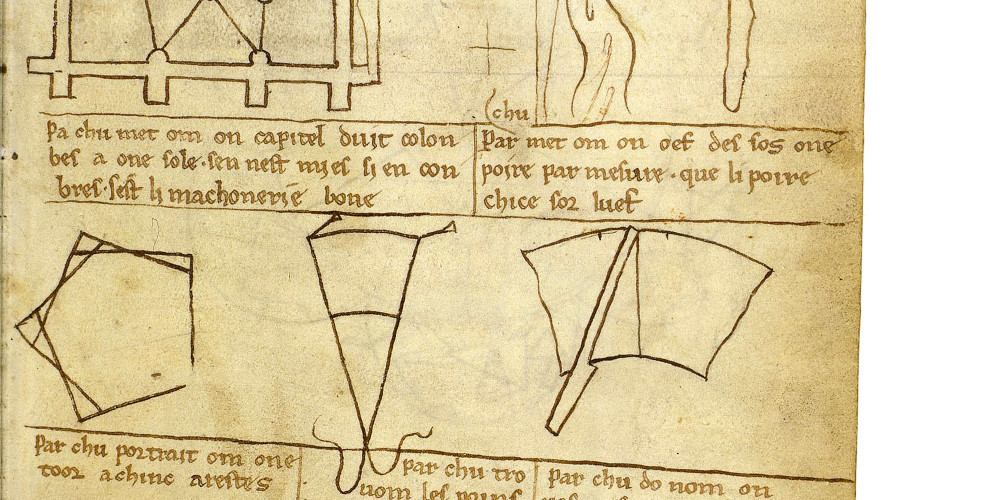 chu
Pa chu met om on capitel duit colon
bes a one sole · sen nest mies si en con
bres · sest li machonerie bone
Par met om on oef des sos one
poire par mesure · que li poire
chice sor luef
Par chu portrait om one
toor a chinc arestes
par chu tro
vom les poins
Par chu do nom on